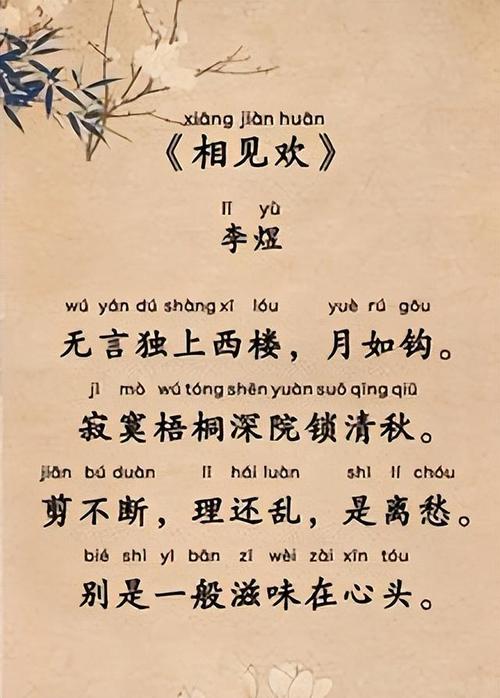 xiāng jiàn huān
《相见欢》
lǐ yù
李煜
wú yán dú shàng xī lóu yuè rú gōu
无言独上西楼，月如钩。
jì mò wú tóng shēn yuàn suǒ qīng qiū
寂寞梧桐深院锁清秋。
jiǎn bú duàn lǐ hái luàn shì lí chóu
剪不断，理还乱，是离愁。
bié shì yì bān zī wèi zài xīn tóu
别是一般滋味在心头。